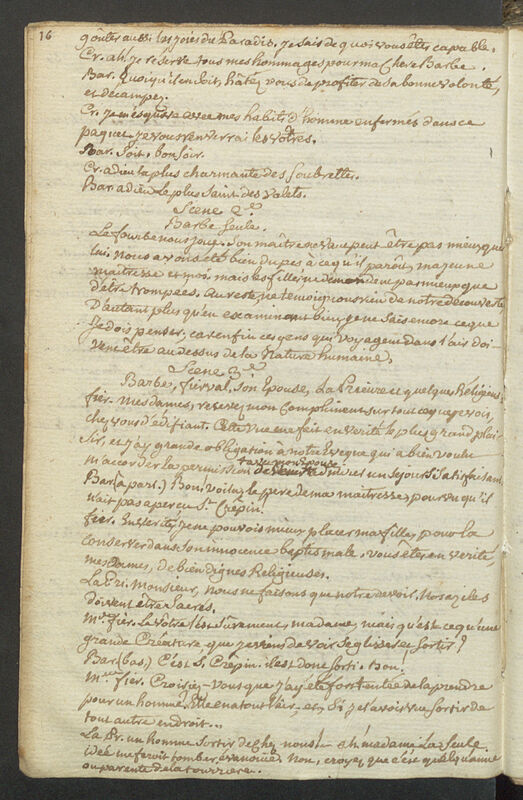 16
goûter aussi les joies du Paradis. je sais de quoi vous êtes capable.
Cr. ah! je réserve tous mes hommages pour ma chere Barbe.
Bar. Quoiqu'il en soit, hâtez vous de profiter de sa bonne volonté,
et décampez.
Cr. je m'esquive avec mes habits d'homme enfermés dans ce
paquet. je vous renverrai les vôtres.
Bar. Soit. bon soir.
Cr. adieu la plus charmante des Soubrettes.
Bar. adieu Le plus Saint des valets.
Scene 2e.
Barbe Seule.
Le fourbe nous joue. Son maître ne vaut peut être pas mieux que
lui. Nous avons été bien dupes à ce qu'il paroît, ma jeune
maitresse et moi. mais les filles ne demandent pas mieux que
d'être trompées. Au reste ne temoignons rien de notre découverte,
D'autant plus qu'en examinant bien, je ne sais encore ce que
je dois penser, car enfin ces gens qui voyagent dans l'air doi-
vent être au dessus de la Nature humaine.
Scene 3e.
Barbe, fierval, son Epouse, La Prieure et quelques Religieus.
fier. Mes dames, recevez mon compliment sur tout ce que je vois,
chez vous d'édifiant. Cette vue me fait en verité le plus grand plai-
sir, et j'ay grande obligation à notre Eveque qui a bien voulu
m'accorder la permission d'admirer un sejour si satisfaisant.
Bar. (à part.) Bon. voilà le pere de ma maitresse, pourvu qu'il
n'ait pas aperçu St. Crépin.
fier. En verité, je ne pouvois mieux placer ma fille, pour la
conserver dans son innocence baptismale. vous êtes, en verité
mes Dames, de bien dignes Religieuses.
La Pri. Monsieur, nous ne faisons que notre devoir. Nos aziles
doivent être sacrés.
Me. fier. Le votre l'est sûrement, madame, mais qu'est ce qu'une
grande Créature que je viens de voir se glisser et sortir?
Bar. (bas.) C'est St. Crépin. il est donc sorti. bon.
Me. fier. Croiriez-vous que j'ay été fort tentée de la prendre
pour un homme. Elle en a tout l'air, et, Si je l'avois vue sortir de
tout autre endroit...
La Pr. un homme Sortir de chez nous! ah! madame La Seule
idée me feroit tomber evanouie. Non, croyez que c'est quelqu'amie
ou parente de la tourriere.